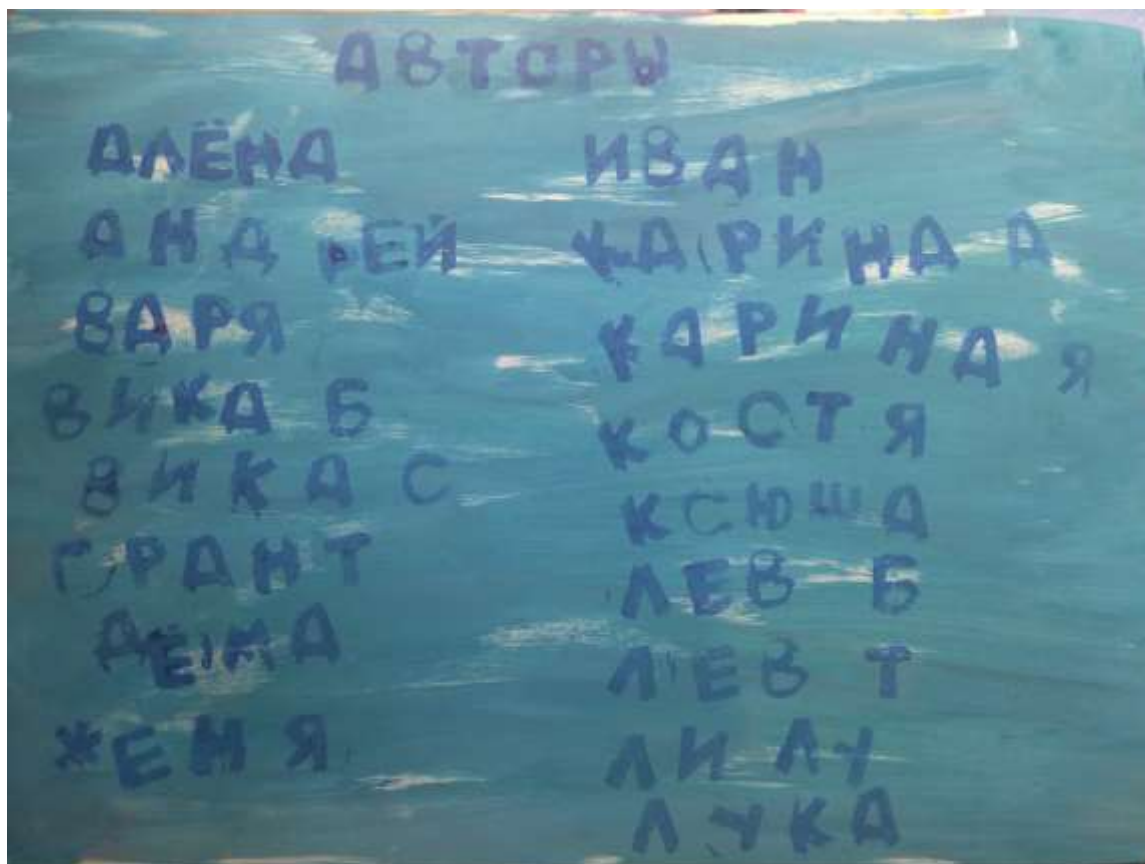 АВТОРЫ
АЛЁНА
АНДРЕЙ
ВАРЯ
ВИКА Б
ВИКА С
ГРАНТ
ДЁМА
ЖЕНЯ
ИВАН
КАРИНА А
КАРИНА Я
КОСТЯ
КСЮША
ЛЕВ Б
ЛЕВ Т
ЛИЛУ
ЛУКА